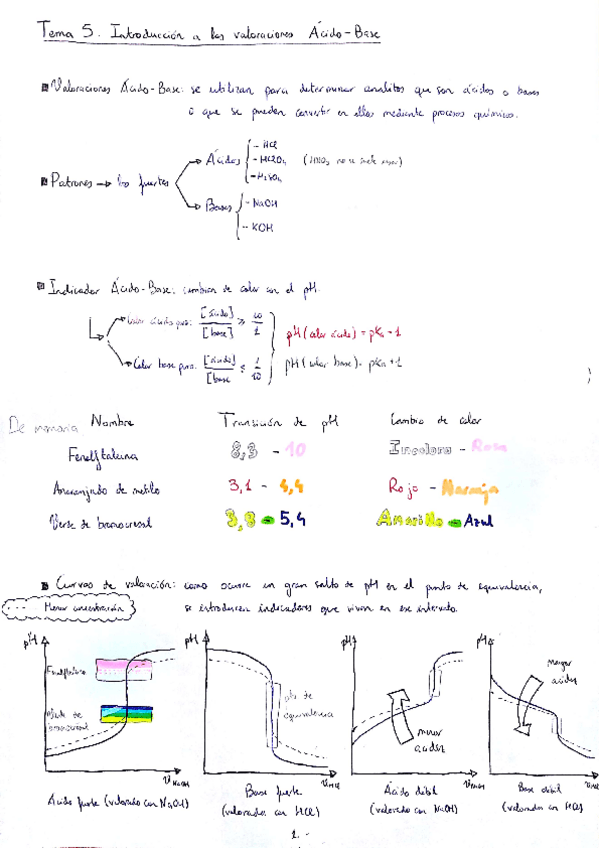 Tema 5. Introducción a las valoraciones Ácido-Base
Valoraciones Ácido-Base: se utilizan para determinar analitos que son ácidos o bases
o que se pueden convertir en ellos mediante procesos químicos.
Patrones → los fuertes
Ácidos - HCl
- HClO4 (HNO3 no se suele usar)
- H2SO4
Bases - NaOH
- KOH
Indicador Ácido-Base: cambian de color con el pH.
Color ácido para: [ácido]/[base] ≥ 10/1
pH (color ácido) = pKa - 1
Color base para: [ácido]/[base ≤ 1/10
pH (color base) = pKa + 1
De memoria Nombre Transición de pH Cambio de color
Fenolftaleína 8,3 - 10 Incoloro - Rosa
Anaranjado de metilo 3,1 - 4,4 Rojo - Naranja
Verde de bromocresol 3,8 - 5,4 Amarillo - Azul
Curvas de valoración: como ocurre un gran salto de pH en el punto de equivalencia,
se introducen indicadores que viran en ese intervalo.
Menor concentración
pH
Fenolftaleína
Verde de bromocresol
V NaOH
Ácido fuerte (valorado con NaOH)
pH
pto de equivalencia
V HCl
Base fuerte (valorados con HCl)
pH
menor acidez
V NaOH
Ácido débil (valorado con NaOH)
pH
menor acidez
V HCl
Base débil (valorados con HCl)
1. -